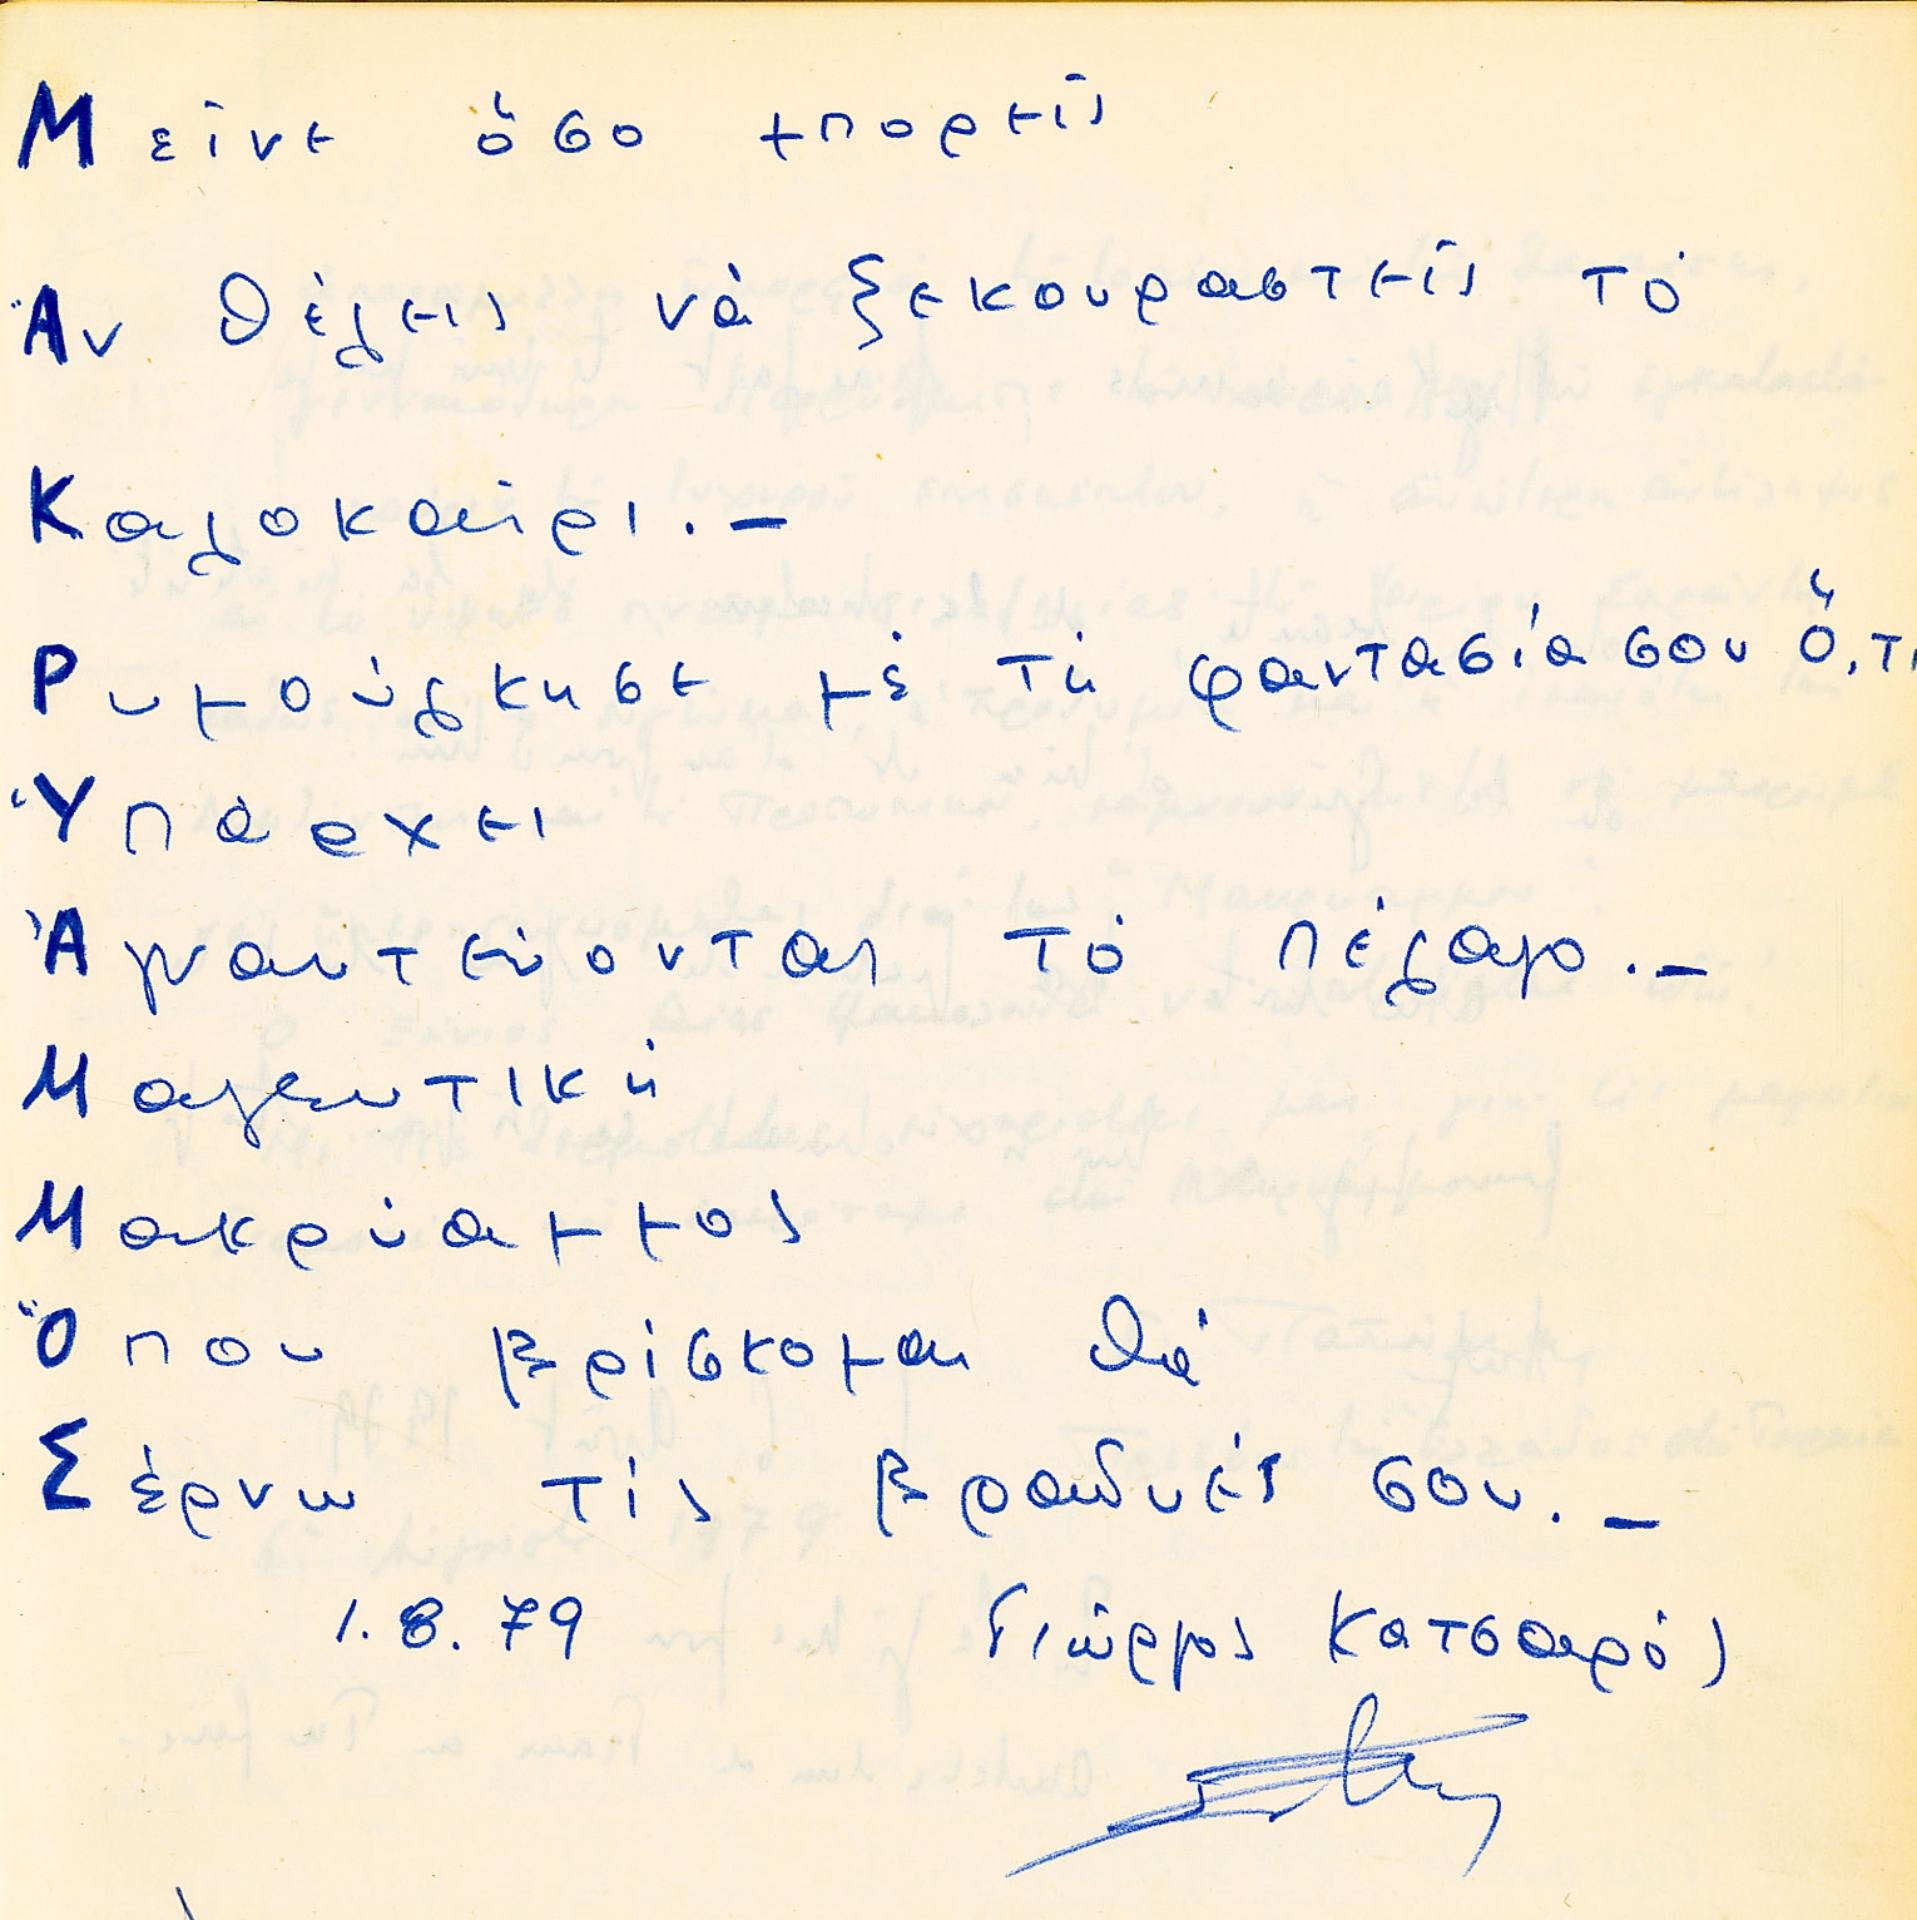 Μεῖνε ὅσο μπορεῖς
Ἄν θέλεις νά ξεκουραστεῖς τό
Καλοκαίρι.-
Ρυμούλκησε μέ τή φαντασία σου ὅ,τι
Ὑπάρχει
Ἀγναντεύοντας τό πέλαγο.-
Μαγευτική
Μακρύαμμος
Ὅπου βρίσκομαι θά
Σέρνω τίς βραδυές σου.-
1.8.79 Γιῶργος Κατσαρός